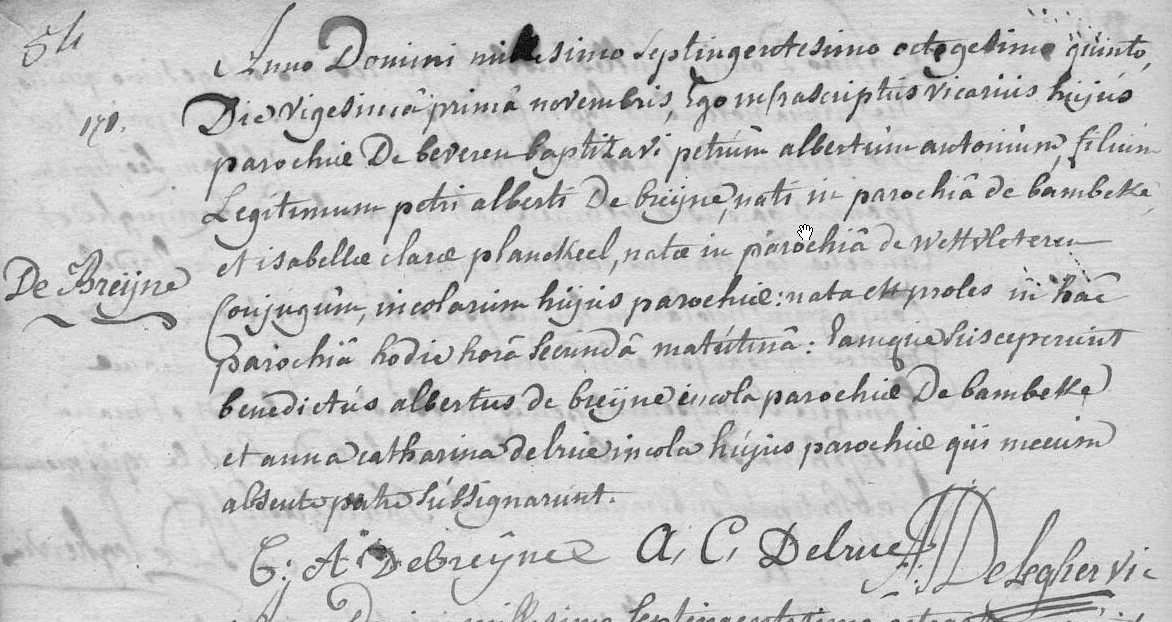 54
Anno Domini millesimo septingentesimo octogesimo quinto,
171.
Die vigesimâ primâ novembris, Ego infrascriptus vicarius hujus
parochiæ De beveren baptizavi petrum albertum antonium, filium
Legitimum petri alberti De breÿne, nati in parochiâ de bambeke,
et isabellæ claræ planckeel, natæ in parochiâ de westvleteren
De Breijne
Conjugum, incolarum hujus parochiæ: nata est proles in hac
parochiâ hodie horâ secundâ matutinâ: eamque susceperunt
benedictus albertus de breÿne incola parochiæ De bambeke
et anna catharina delrue incola hujus parochiæ qui mecum
absente patre subsignarunt.
B: A: Debreÿne A, C, Delrue DeLegher vic
Domini millesimo septingentesimo